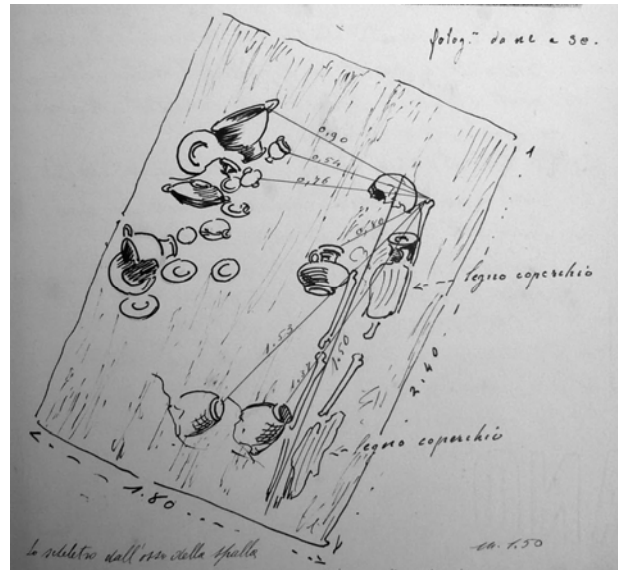 fotog.ª da NE a SE.
0,90
0,54
0,76
0,40
legno coperchio
1.53
1.37
1.50
2.40
legno coperchio
1.80
Lo scheletro dall'osso della spalla
m. 1.50